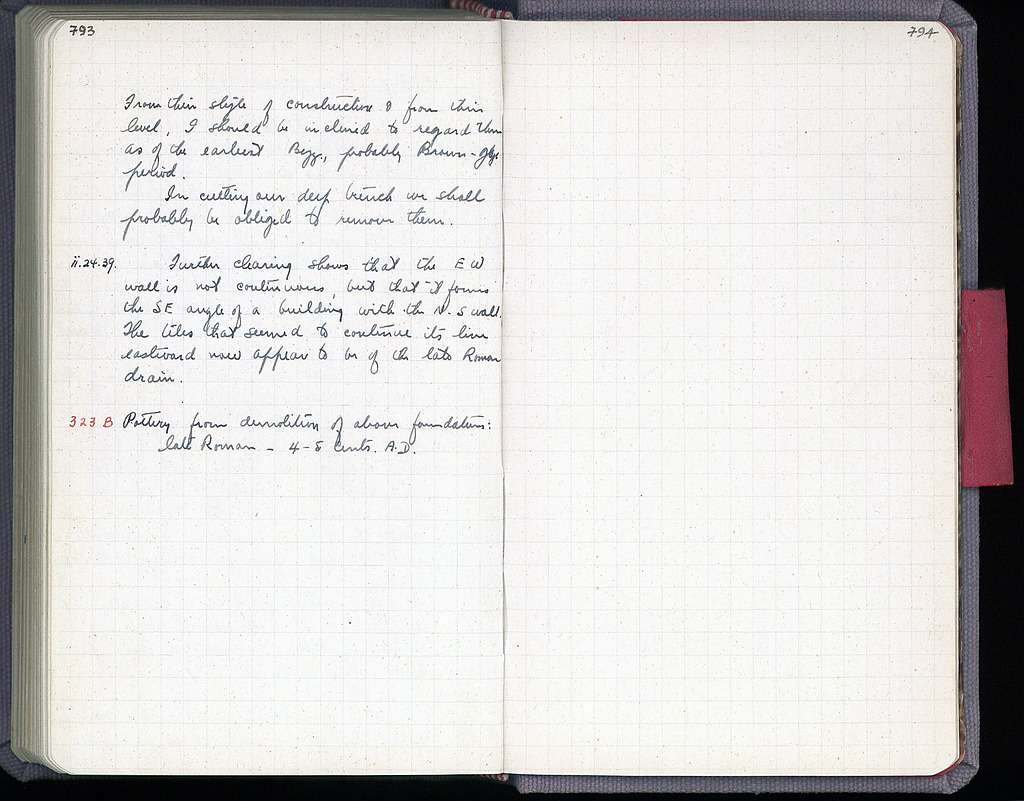 793
From their style of construction & from their
level, I should be inclined to regard them
as of the earliest Byz., probably Brown-Glz
period.
In cutting our deep trench we shall
probably be obliged to remove them.
ii.24.39. Further clearing shows that the E W
wall is not continuous, but that it forms
the SE angle of a building with the N-S wall.
The tiles that seemed to continue its line
eastward now appear to be of the late Roman
drain.
323 B Pottery from demolition of above foundations:
late Roman - 4-5 cents. A.D.
794